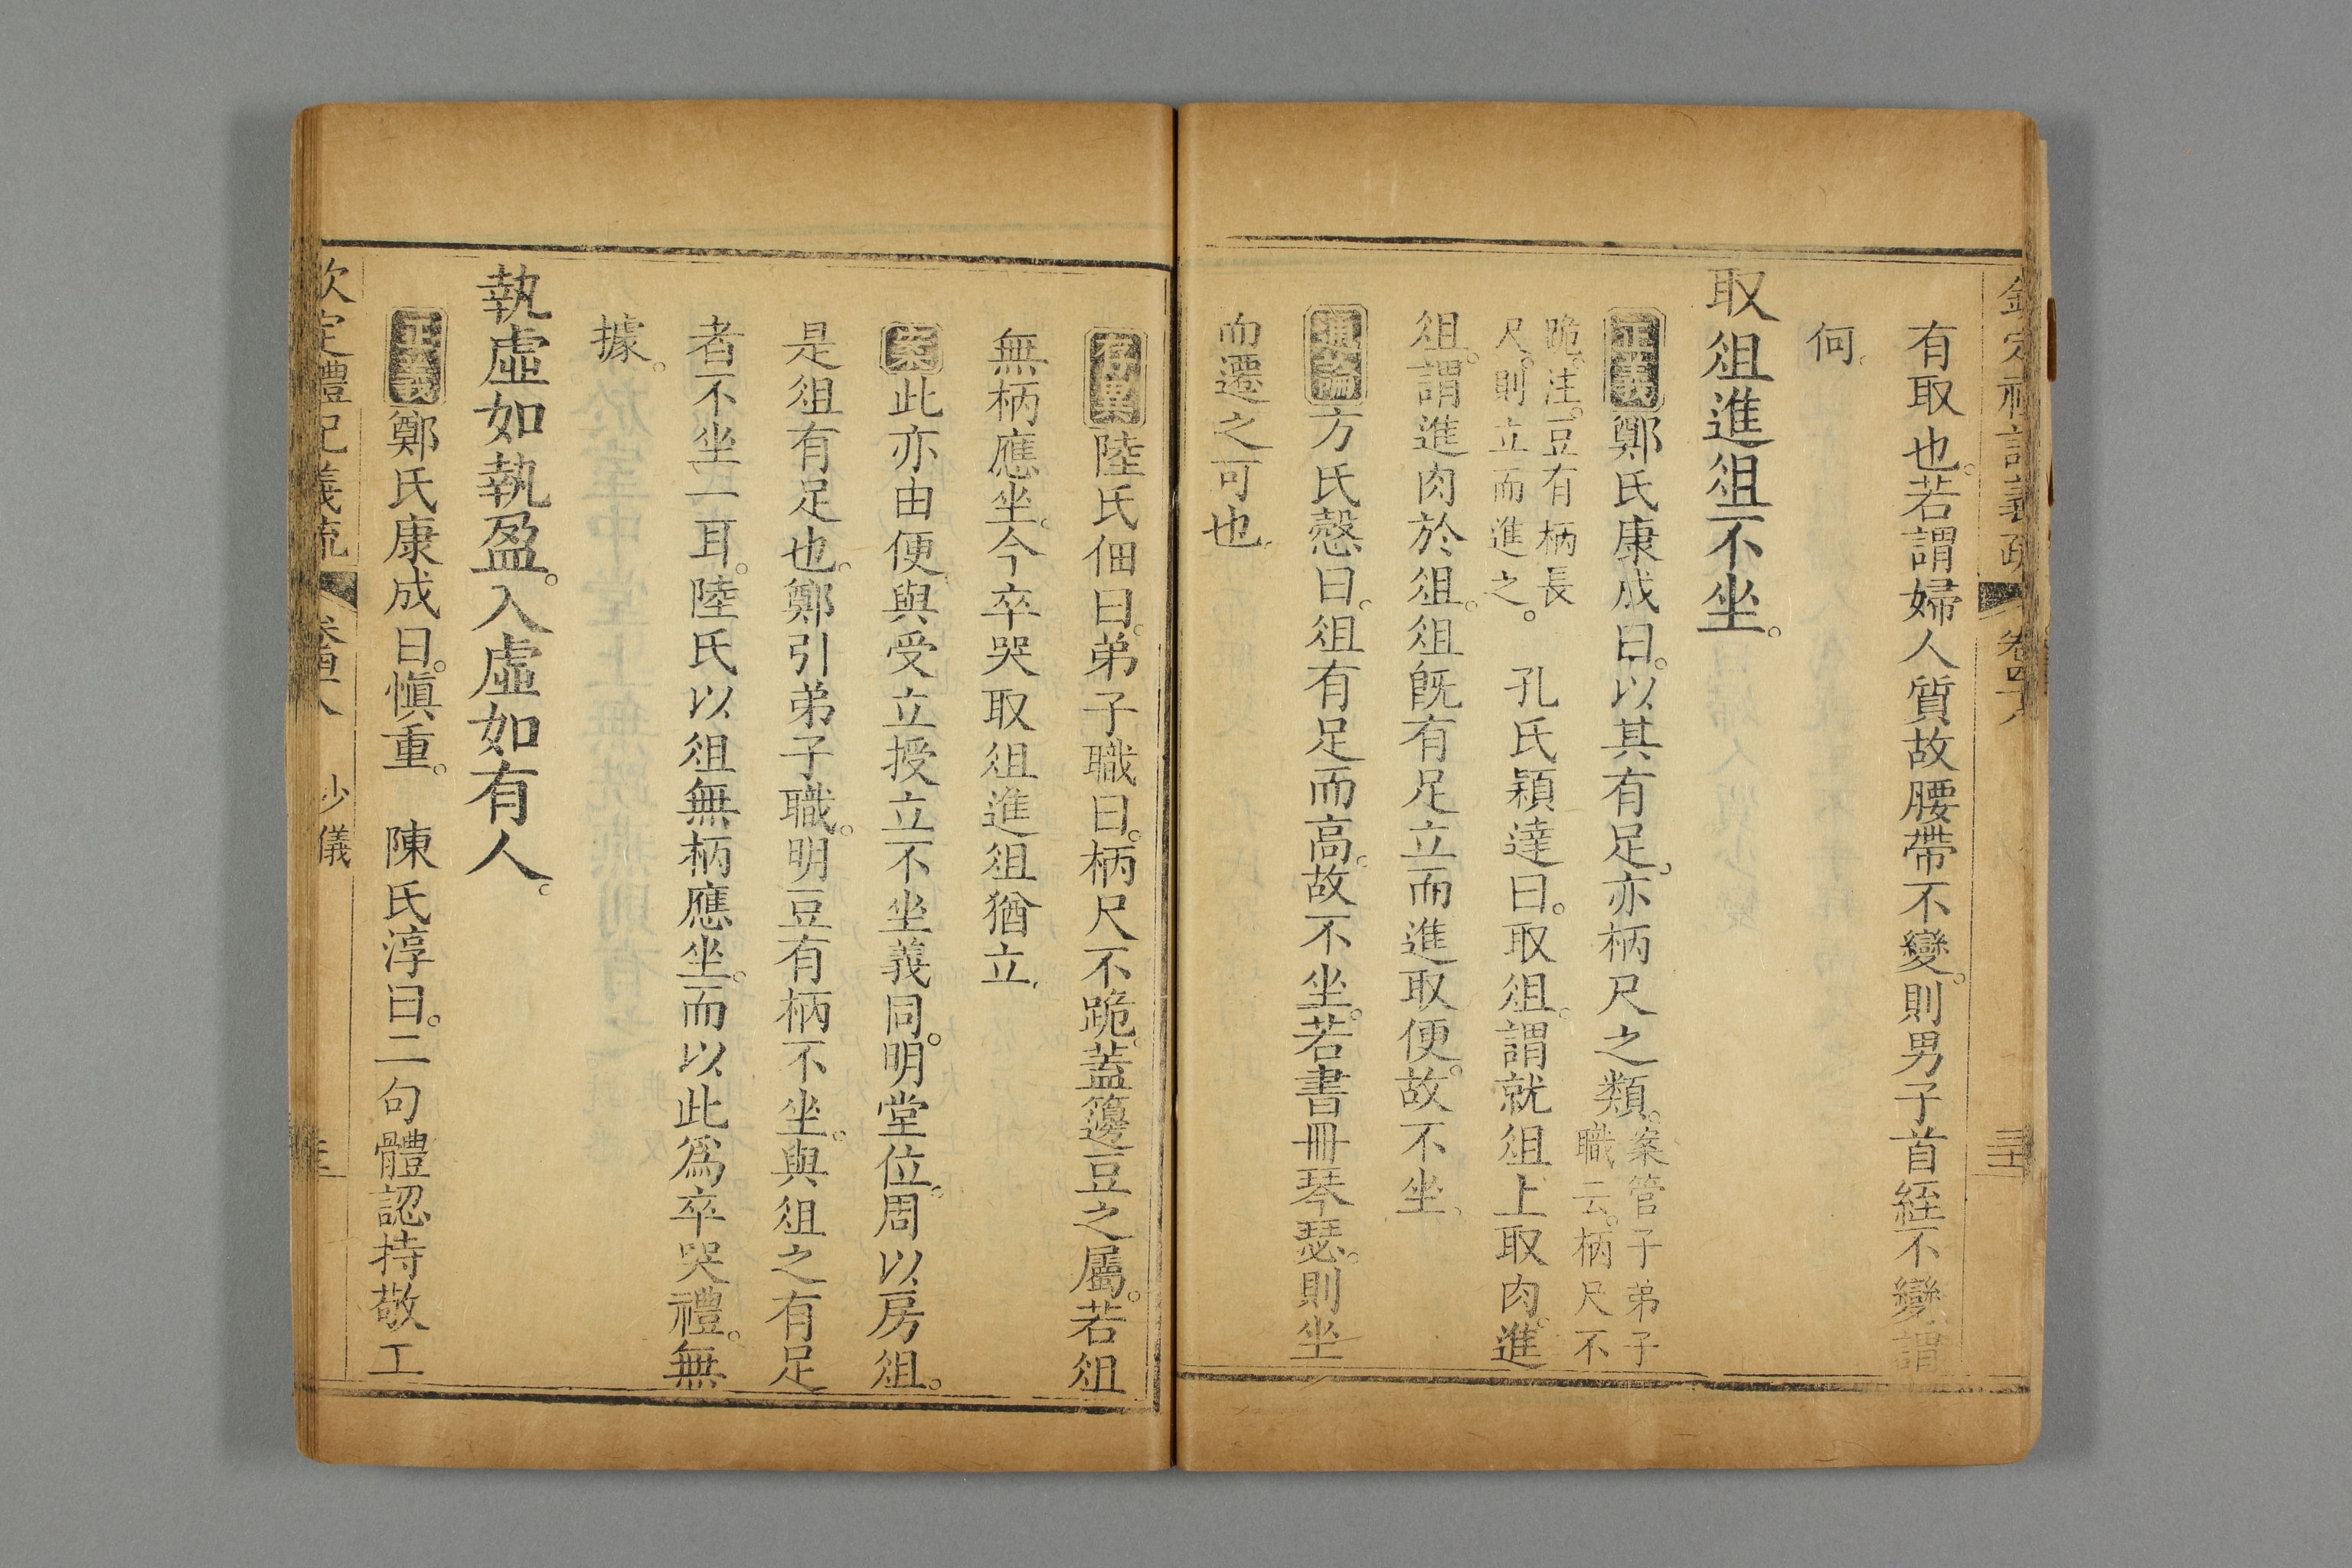 欽定禮記義疏 卷四十八
有取也。若謂婦人質故腰帶不變。則男子首絰不變謂
何。
取俎進俎不坐。
正義鄭氏康成曰。以其有足。亦柄尺之類。案管子弟子
職云。柄尺不
跪。注。豆有柄長
尺。則立而進之。 孔氏穎達曰。取俎。謂就俎上取肉。進
俎。謂進肉於俎。俎旣有足立而進取便。故不坐。
通論方氏慤曰。俎有足而高。故不坐。若書冊琴瑟。則坐
而遷之可也。
存異陸氏佃曰。弟子職曰。柄尺不跪。蓋籩豆之屬。若俎
無柄應坐。今卒哭取俎進俎猶立。
案此亦由便。與受立授立不坐義同。明堂位。周以房俎。
是俎有足也。鄭引弟子職。明豆有柄不坐。與俎之有足
者不坐一耳。陸氏以俎無柄應坐。而以此爲卒哭禮。無
據。
執虛如執盈。入虛如有人。
正義鄭氏康成曰。愼重。 陳氏淳曰。二句體認持敬工
欽定禮記義疏 卷四十八 少儀